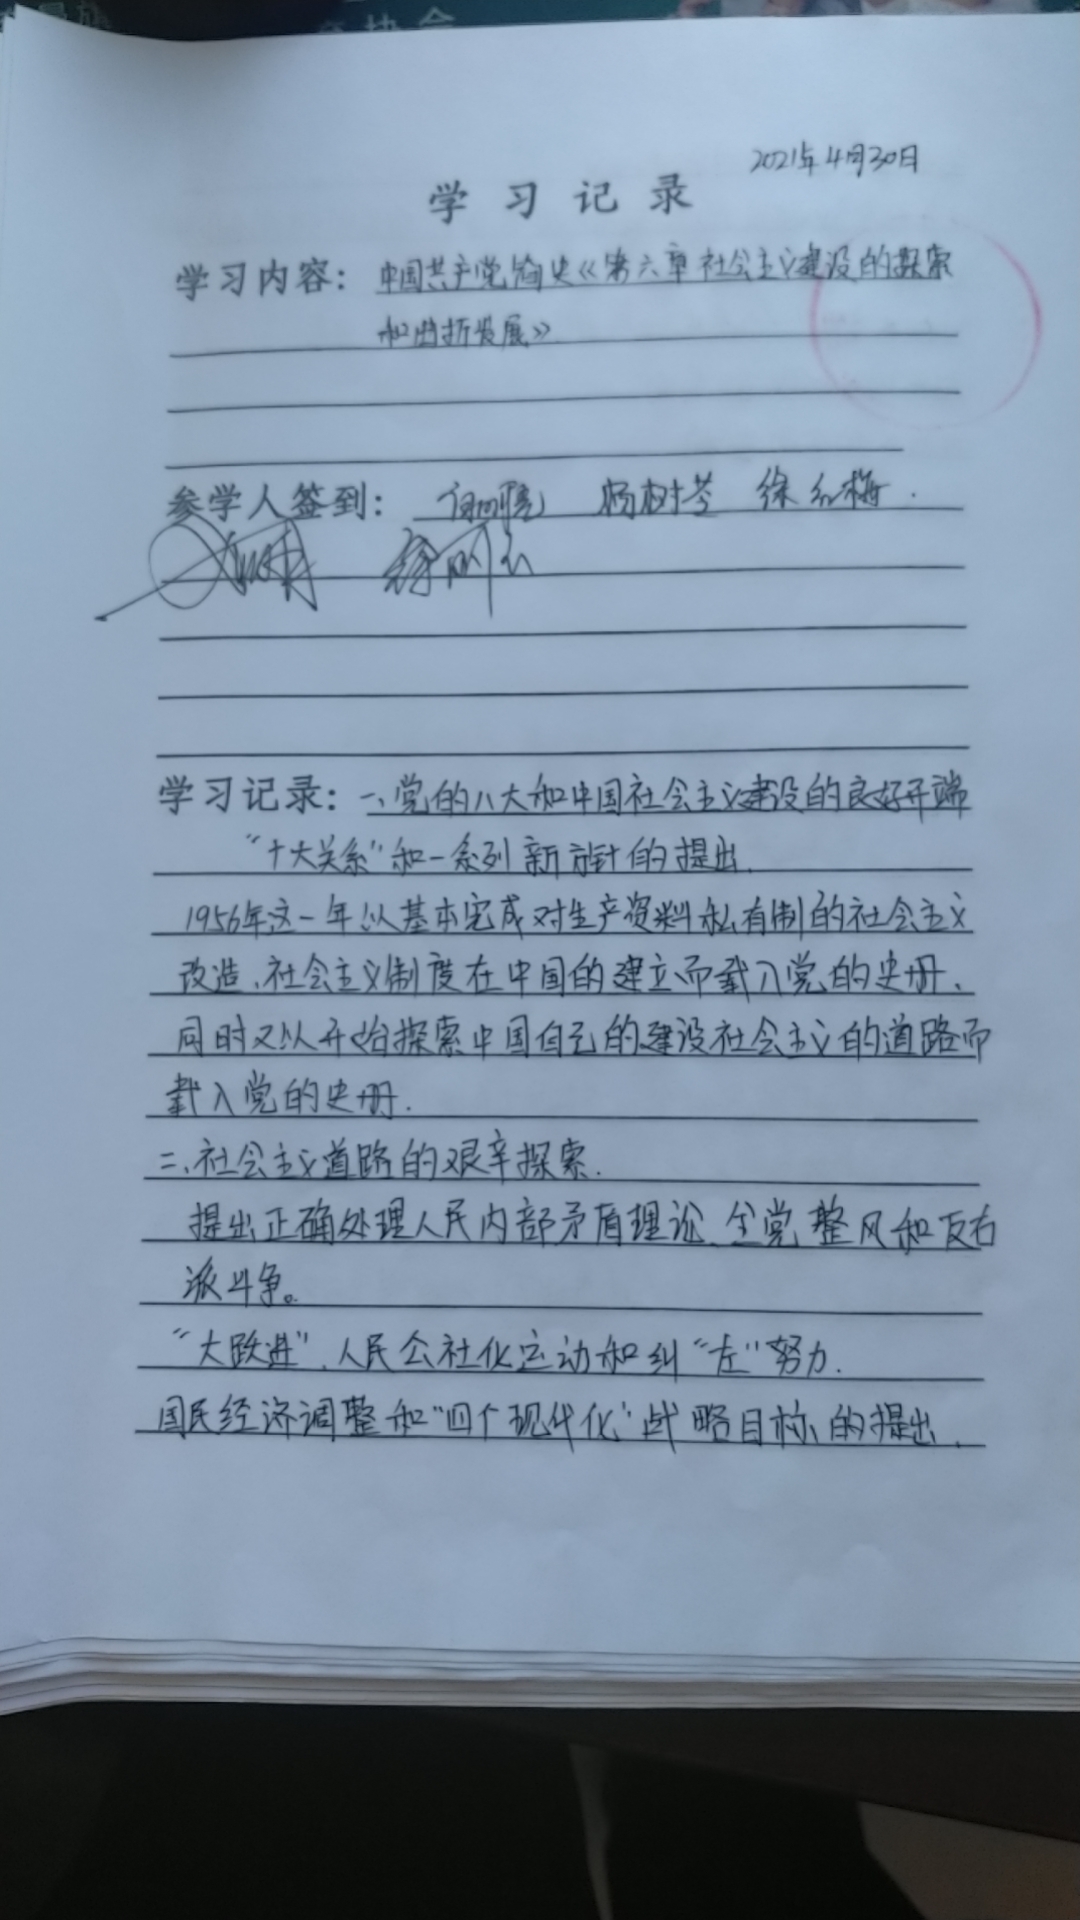 协会
2021年4月30日
学习记录
学习内容：中国共产党简史《第六章社会主义建设的探索
和曲折发展》
参学人签到：杨树芩 徐红梅.
学习记录：一、党的八大和中国社会主义建设的良好开端
“十大关系”和一系列新方针的提出.
1956年这一年以基本完成对生产资料私有制的社会主义
改造、社会主义制度在中国的建立而载入党的史册、
同时又以开始探索中国自己的建设社会主义的道路而
载入党的史册.
二、社会主义道路的艰辛探索.
提出正确处理人民内部矛盾理论、全党整风和反右
派斗争。
“大跃进”、人民公社化运动和纠“左”努力.
国民经济调整和“四个现代化”战略目标的提出.